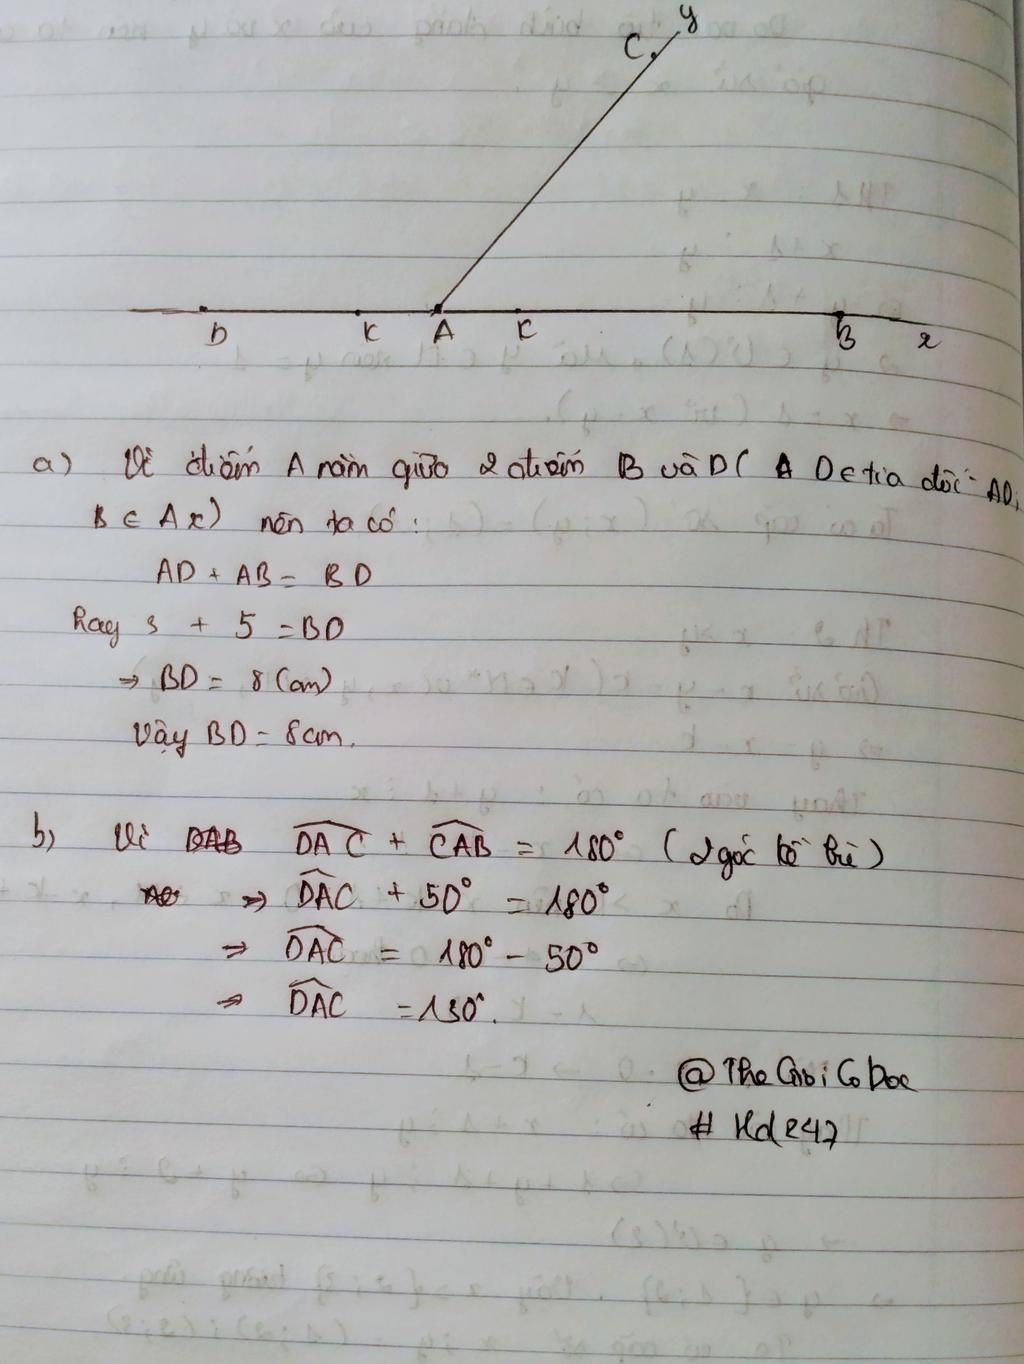 y
C
D K A K B x
a) Vì điểm A nằm giữa 2 điểm B và D ( A D ∈ tia đối AD;
B ∈ Ax) nên ta có:
AD + AB = BD
Hay 3 + 5 = BD
⇒ BD = 8 (cm)
Vậy BD = 8cm.
b) Vì DAB DAC + CAB = 180° (2 góc kề bù)
⇒ DAC + 50° = 180°
⇒ DAC = 180° - 50°
⇒ DAC = 130°.
@TheGioiCoDoc
# Hd247